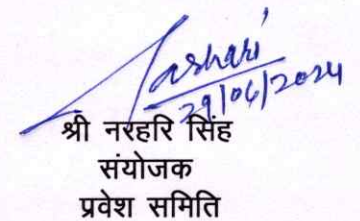 Narhari
29/06/2024
श्री नरहरि सिंह
संयोजक
प्रवेश समिति